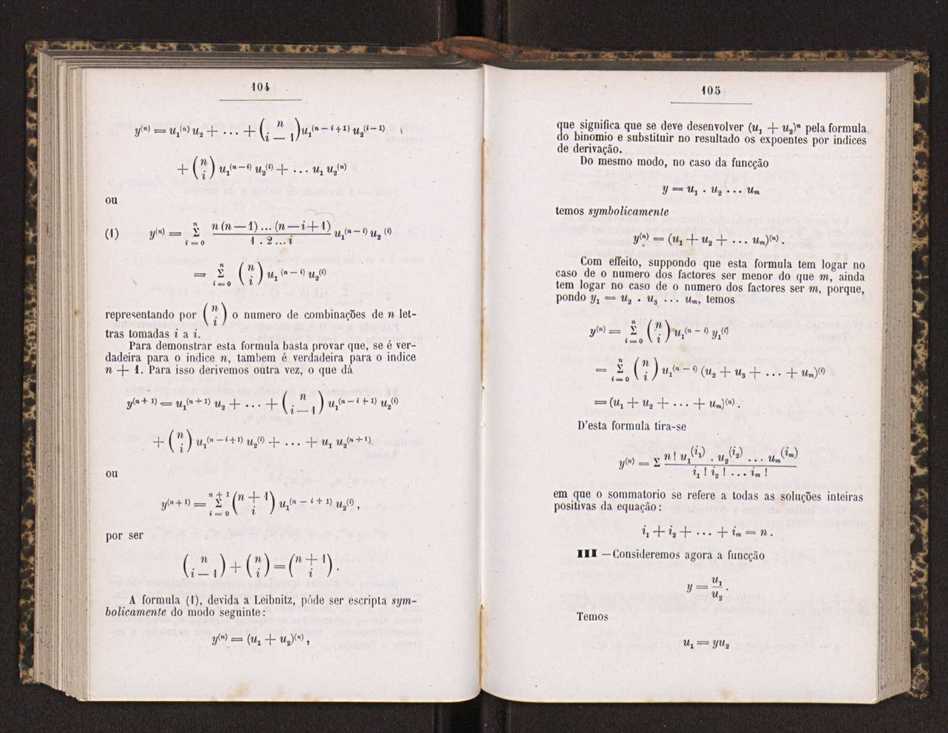 104
y⁽ⁿ⁾ = u₁⁽ⁿ⁾ u₂ + ... + (n / i − 1) u₁⁽ⁿ⁻ⁱ⁺¹⁾ u₂⁽ⁱ⁻¹⁾
+ (n / i) u₁⁽ⁿ⁻ⁱ⁾ u₂⁽ⁱ⁾ + ... u₁ u₂⁽ⁿ⁾
ou
(1) y⁽ⁿ⁾ = Σ_{i=0}^{n} n (n−1) ... (n−i+1) / 1 . 2 ... i u₁⁽ⁿ⁻ⁱ⁾ u₂⁽ⁱ⁾
= Σ_{i=0}^{n} (n / i) u₁⁽ⁿ⁻ⁱ⁾ u₂⁽ⁱ⁾
representando por (n / i) o numero de combinações de n let-
tras tomadas i a i.
Para demonstrar esta formula basta provar que, se é ver-
dadeira para o indice n, tambem é verdadeira para o indice
n + 1. Para isso derivemos outra vez, o que dá
y⁽ⁿ⁺¹⁾ = u₁⁽ⁿ⁺¹⁾ u₂ + ... + (n / i−1) u₁⁽ⁿ⁻ⁱ⁺¹⁾ u₂⁽ⁱ⁾
+ (n / i) u₁⁽ⁿ⁻ⁱ⁺¹⁾ u₂⁽ⁱ⁾ + ... + u₁ u₂⁽ⁿ⁺¹⁾
ou
y⁽ⁿ⁺¹⁾ = Σ_{i=0}^{n+1} (n + 1 / i) u₁⁽ⁿ⁻ⁱ⁺¹⁾ u₂⁽ⁱ⁾,
por ser
(n / i−1) + (n / i) = (n + 1 / i).
A formula (1), devida a Leibnitz, póde ser escripta sym-
bolicamente do modo seguinte:
y⁽ⁿ⁾ = (u₁ + u₂)⁽ⁿ⁾,
105
que significa que se deve desenvolver (u₁ + u₂)ⁿ pela formula
do binomio e substituir no resultado os expoentes por indices
de derivação.
Do mesmo modo, no caso da funcção
y = u₁ . u₂ ... uₘ
temos symbolicamente
y⁽ⁿ⁾ = (u₁ + u₂ + ... uₘ)⁽ⁿ⁾.
Com effeito, suppondo que esta formula tem logar no
caso de o numero dos factores ser menor do que m, ainda
tem logar no caso de o numero dos factores ser m, porque,
pondo y₁ = u₂ . u₃ ... uₘ, temos
y⁽ⁿ⁾ = Σ_{i=0}^{n} (n / i) u₁⁽ⁿ⁻ⁱ⁾ y₁⁽ⁱ⁾
= Σ_{i=0}^{n} (n / i) u₁⁽ⁿ⁻ⁱ⁾ (u₂ + u₃ + ... + uₘ)⁽ⁱ⁾
= (u₁ + u₂ + ... + uₘ)⁽ⁿ⁾.
D'esta formula tira-se
y⁽ⁿ⁾ = Σ n ! u₁^(i₁) . u₂^(i₂) ... uₘ^(iₘ) / i₁ ! i₂ ! ... iₘ !
em que o sommatorio se refere a todas as soluções inteiras
positivas da equação:
i₁ + i₂ + ... + iₘ = n.
III — Consideremos agora a funcção
y = u₁ / u₂.
Temos
u₁ = yu₂